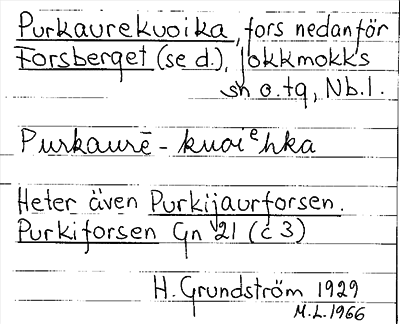 Purkaurekuoika, fors nedanför
Forsberget (se d.), Jokkmokks
sn o. tg, Nb.l.
Purkaurē - kuoiᵉhka
Heter även Purkijaurforsen.
Purkiforsen Gn 21 (c 3)
H. Grundström 1929
M.L. 1966